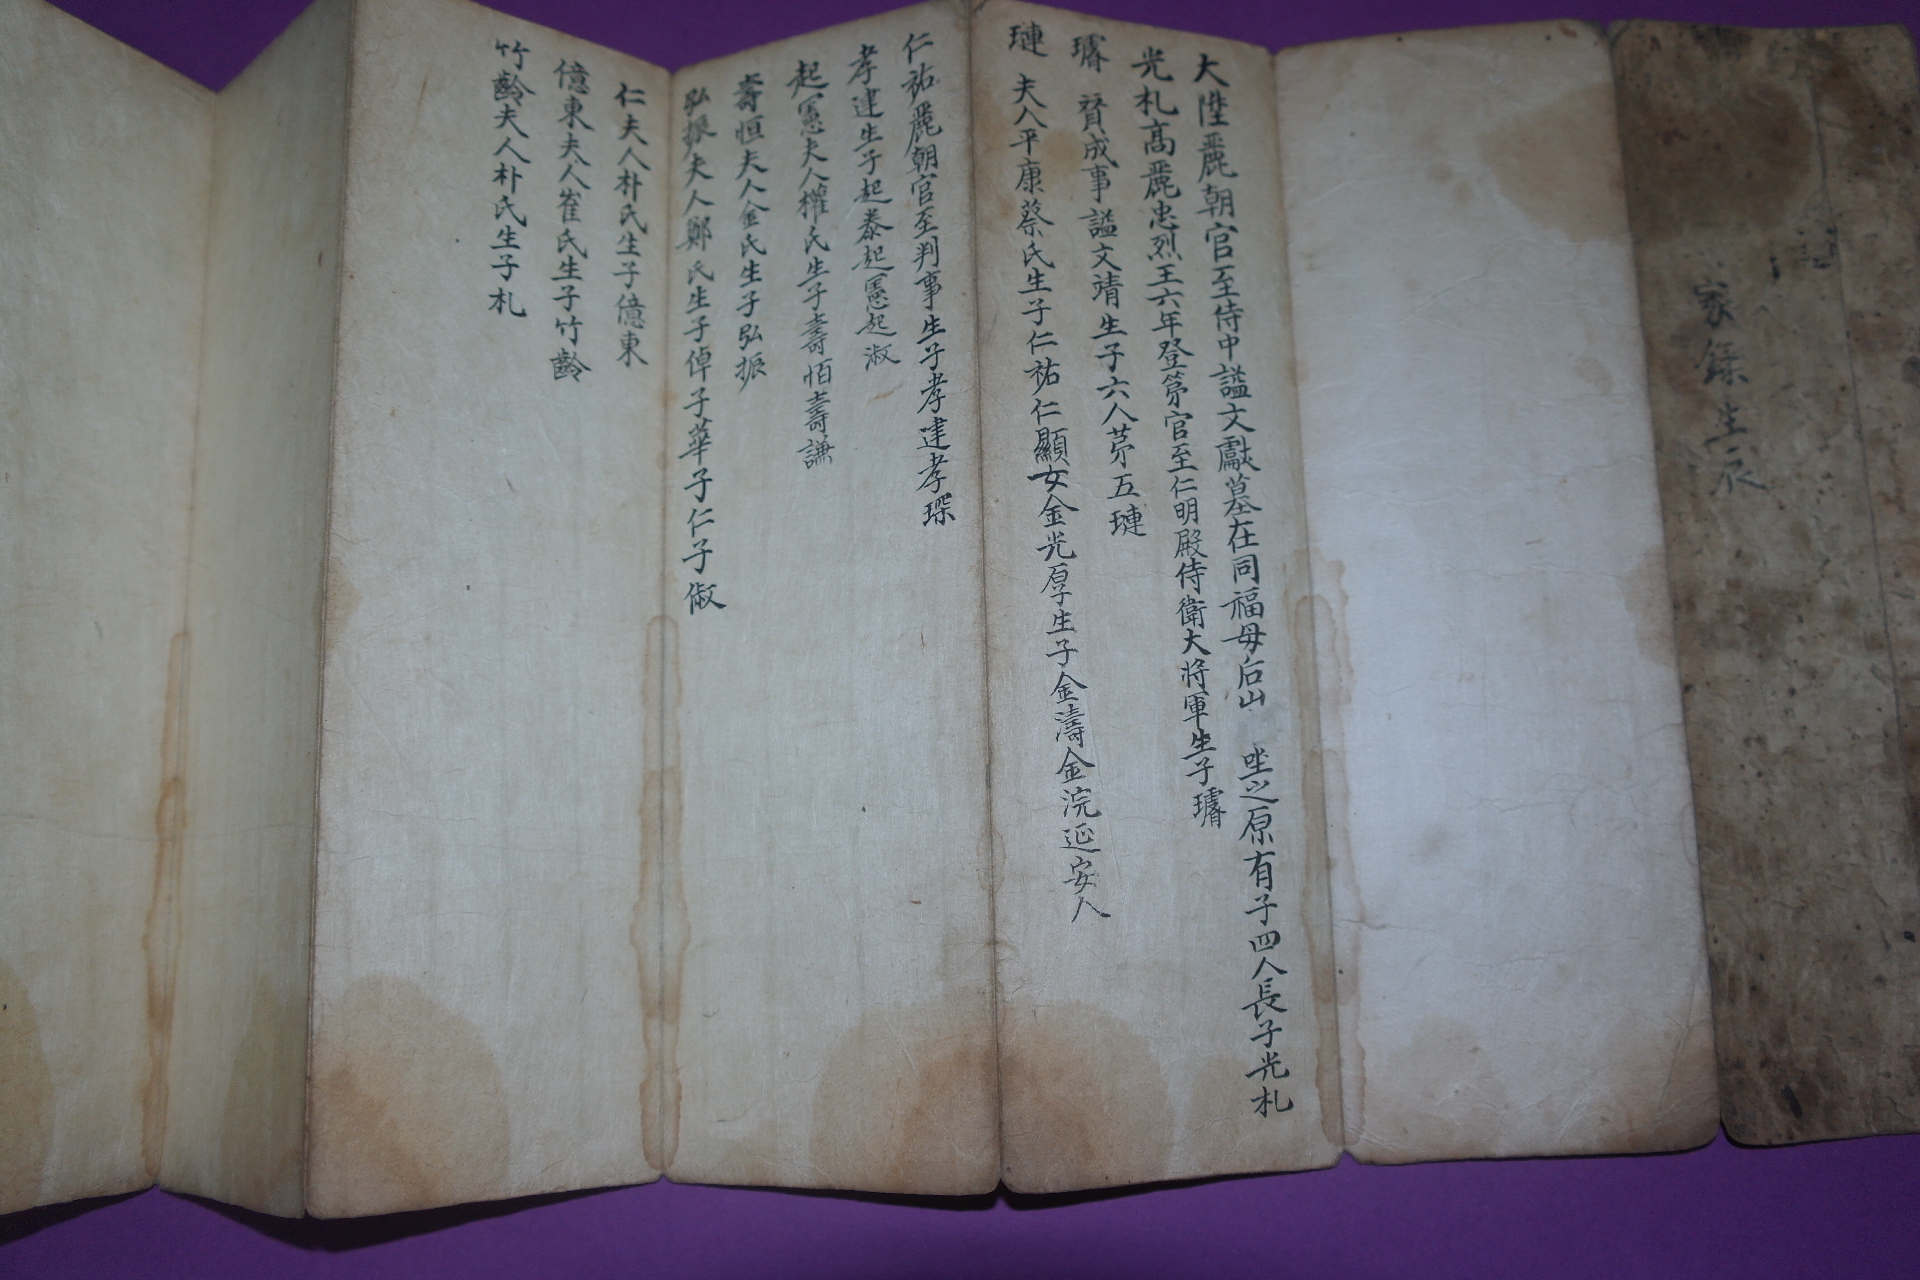 家錄生辰
大陞麗朝官至侍中謚文獻墓在同福母后山 坐之原有子四人長子光札
光札高麗忠烈王六年登第官至仁明殿侍衛大將軍生子璿
璿 贊成事謚文靖生子六人苐五璉
璉 夫人平康蔡氏生子仁祐仁顯女金光厚生子金濤金浣延安人
仁祐麗朝官至判事生子孝建孝琛
孝建生子起泰起憲起淑
起憲夫人權氏生子壽恒壽謙
壽恒夫人金氏生子弘振
弘振夫人鄭氏生子倬子華子仁子俶
仁夫人朴氏生子億東
億東夫人崔氏生子竹齡
竹齡夫人朴氏生子札